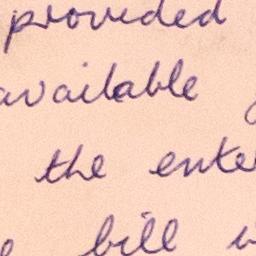 provided
available
the ente
bill